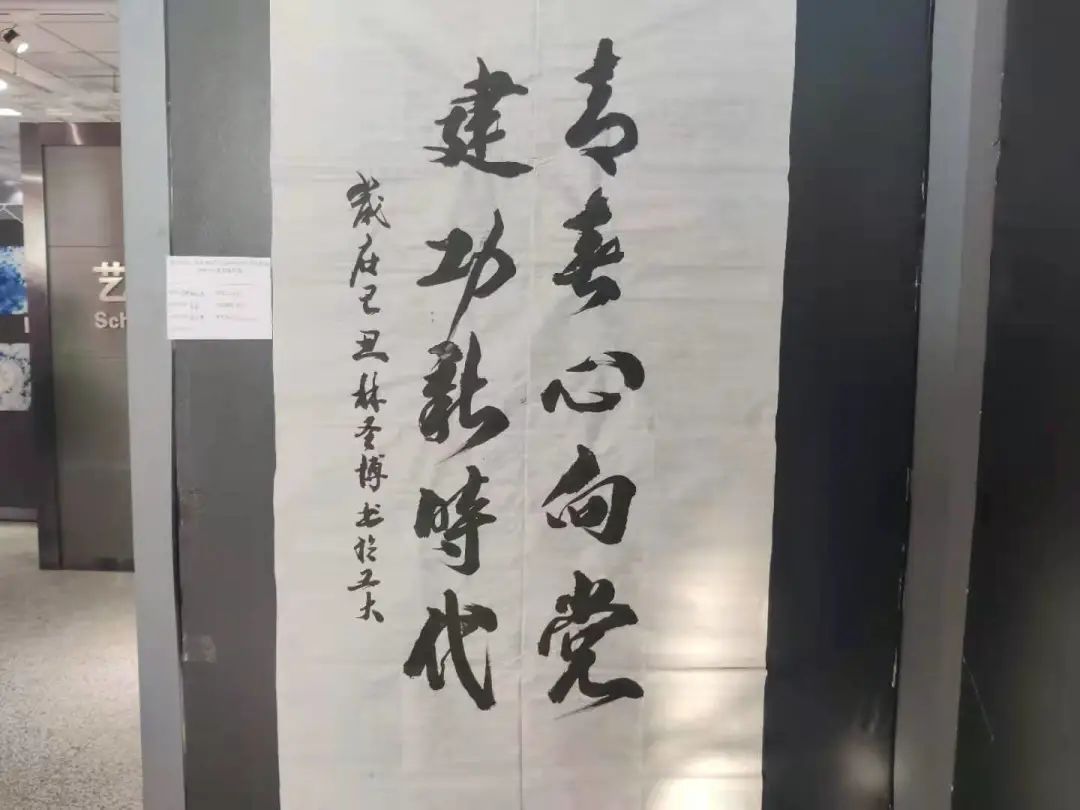 青春心向党
建功新時代
歲在己丑林圣博书於工大
艺
Sch